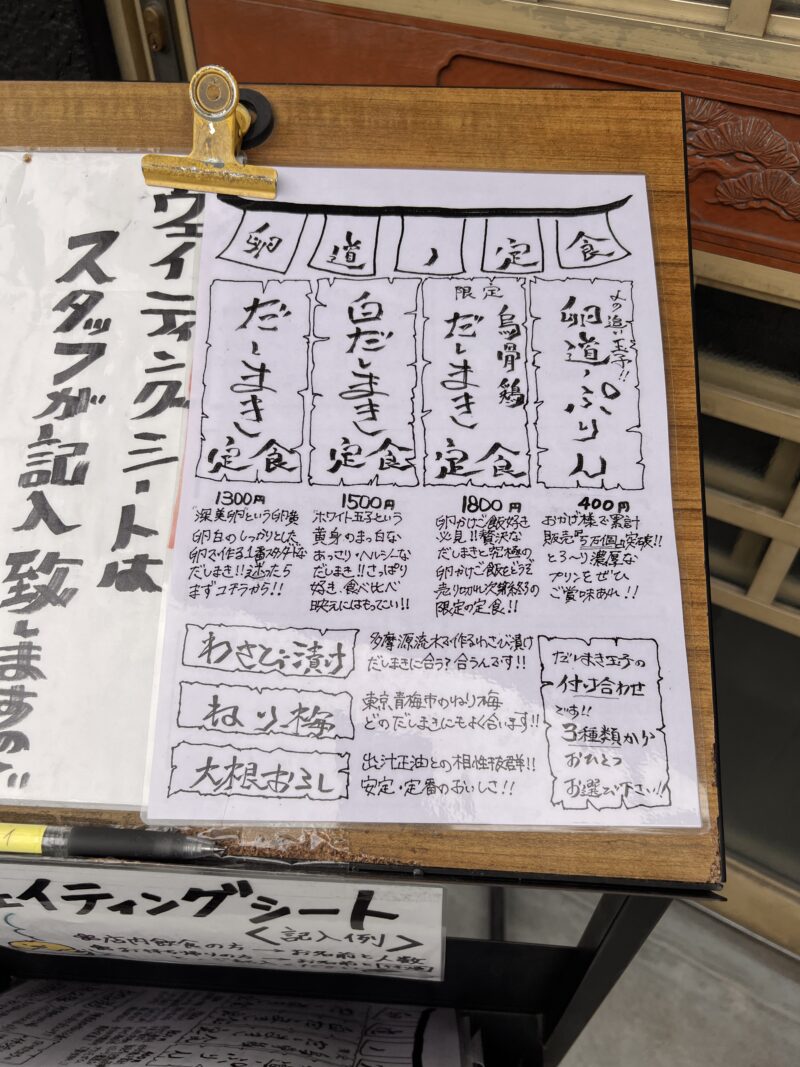 ウェイティングシートは
スタッフが記入致しますので!!
卵道ノ定食
だしまき定食
1300円
卵白のしっかりとした
だしまき!!迷ったら
まずコチラから!!
白だしまき定食
1500円
ホワイト玉子という
黄身のまっ白な
あっさり・ヘルシーな
だしまき!!さっぱり
好き、食べ比べ
映えにはもってこい!!
限定
烏骨鶏
だしまき定食
1800円
卵かけご飯好き
必見!!贅沢な
だしまきと究極の
卵かけご飯をどうぞ
売り切れ次第終了の
限定の定食!!
卵道ノぷりん
400円
おかげ様で累計
販売5万個突破!!
とろ〜り濃厚な
プリンをぜひ
ご賞味あれ!!
わさび漬け
多摩源流水で作るわさび漬け
だしまきに合う?合うんです!!
ねり梅
東京青梅市のねり梅
どのだしまきにもよく合います!!
大根おろし
出汁正油との相性抜群!!
安定・定番のおいしさ!!
だしまき玉子の
付け合わせ
です!!
3種類から
おひとつ
お選び下さい!!
ェイティングシート
<記入例>